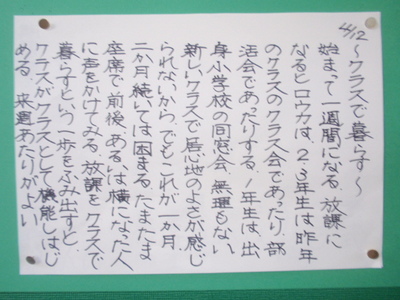 4/12
～クラスで暮らす～
始まって一週間になる。放課に
なるとロウカは、2、3年生は昨年
のクラスのクラス会であったり、部
活会であったりする。1年生は、出
身小学校の同窓会。無理もない。
新しいクラスで居心地のよさが感じ
られないから。でもこれが一か月、
二か月続いては困る。たまたま
座席で前後、あるいは横になった人
に声をかけてみる。放課をクラスで
暮らすという一歩をふみ出すと、
クラスがクラスとして機能しはじ
める。来週あたりがよい